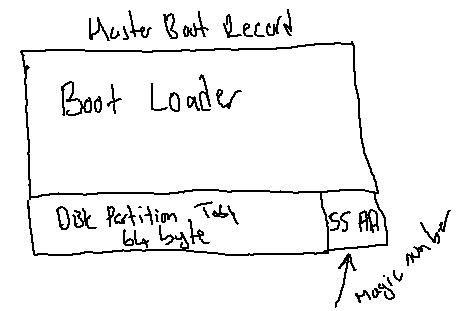 Master Boot Record
Boot Loader
Disk Partition Tabl
64 byte
55 AA
Magic number